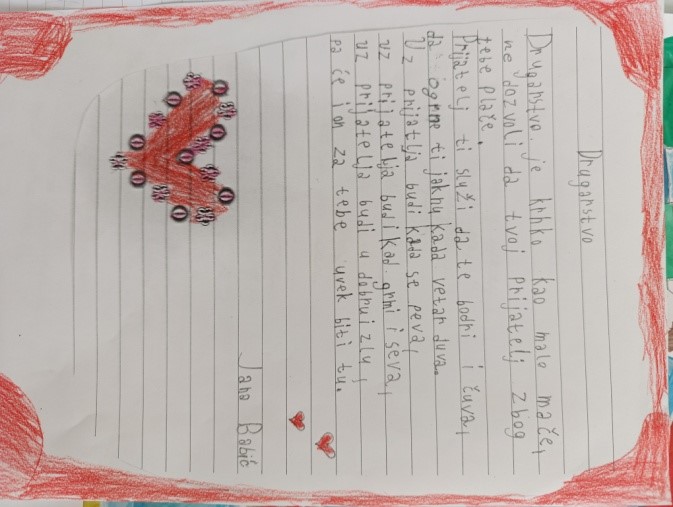 Druganstvo
Druganstvo je krhko kao malo mače,
ne dozvoli da tvoj prijatelj zbog
tebe plače.
Prijatelj ti služi da te bodri i čuva,
da ogrne ti jaknu kada vetar duva.
Uz prijatlja budi kada se peva,
uz prijatelja budi kad grmi i seva,
uz prijatelja budi u dobru i zlu,
pa će i on za tebe uvek biti tu.
Jana Babić